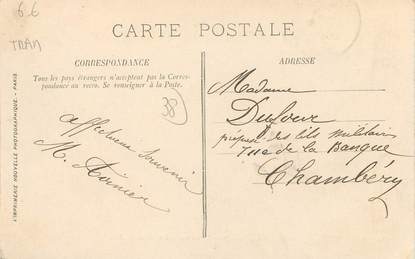 6.6
TRAM
CARTE POSTALE
CORRESPONDANCE
Tous les pays étrangers n'acceptent pas la Corres-
pondance au recto. Se renseigner à la Poste.
ADRESSE
L'IMPRIMERIE NOUVELLE PHOTOGRAPHIQUE - PARIS
38
affectueux souvenir
M.
Madame
Dufour
des lits militaires
rue de la Banque
Chambéry